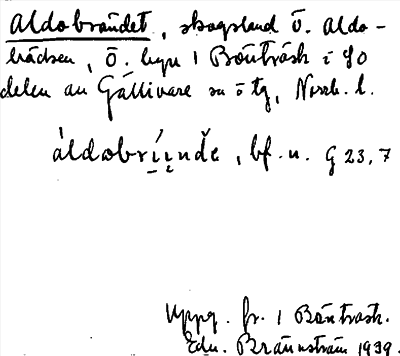 Aldobrändet, skogsland ö. Aldo-
brädsen, Ö. byn i Böuträsk i SO
delen av Gällivare sn o tg, Norrb. l.
áldobrı̨ı̨ndĕ, bf. n. G 23, 7
Uppg. fr. i Böuträsk.
Edv. Brännström 1939.